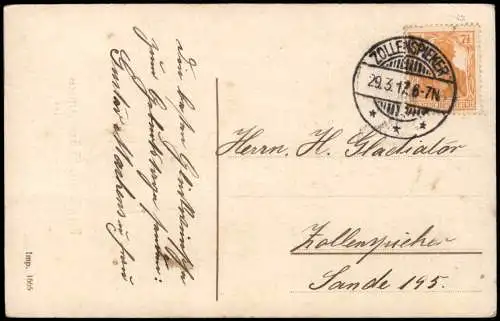 Die besten Glückwünsche
zum Geburtstage senden:
Gustav Maahens u. Frau
ZOLLENSPIEKER
29.3.17.6-7N.
* * *
7½
Herrn. H. Gladiator
Zollenspieker
Sande 195.
Imp. 1665